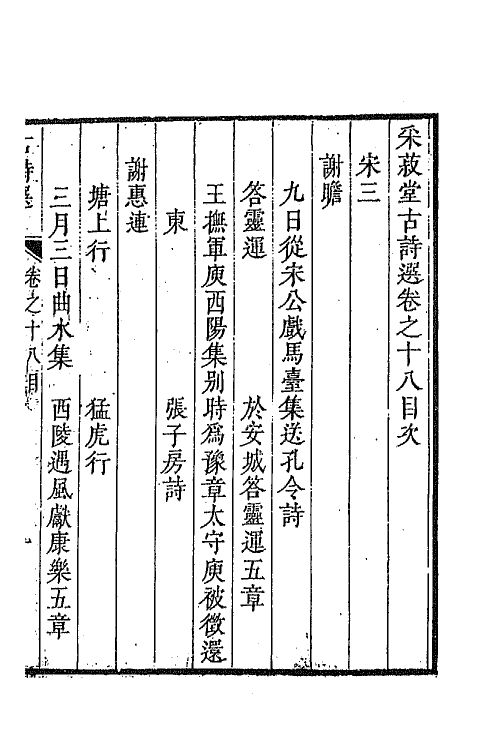 采菽堂古詩選卷之十八目次
宋三
謝瞻
九日從宋公戲馬臺集送孔令詩
答靈運　於安城答靈運五章
王撫軍庾西陽集别時爲豫章太守庾被徵還
東　張子房詩
謝惠連
塘上行　猛虎行
三月三日曲水集　西陵遇風獻康樂五章
卷之十八目